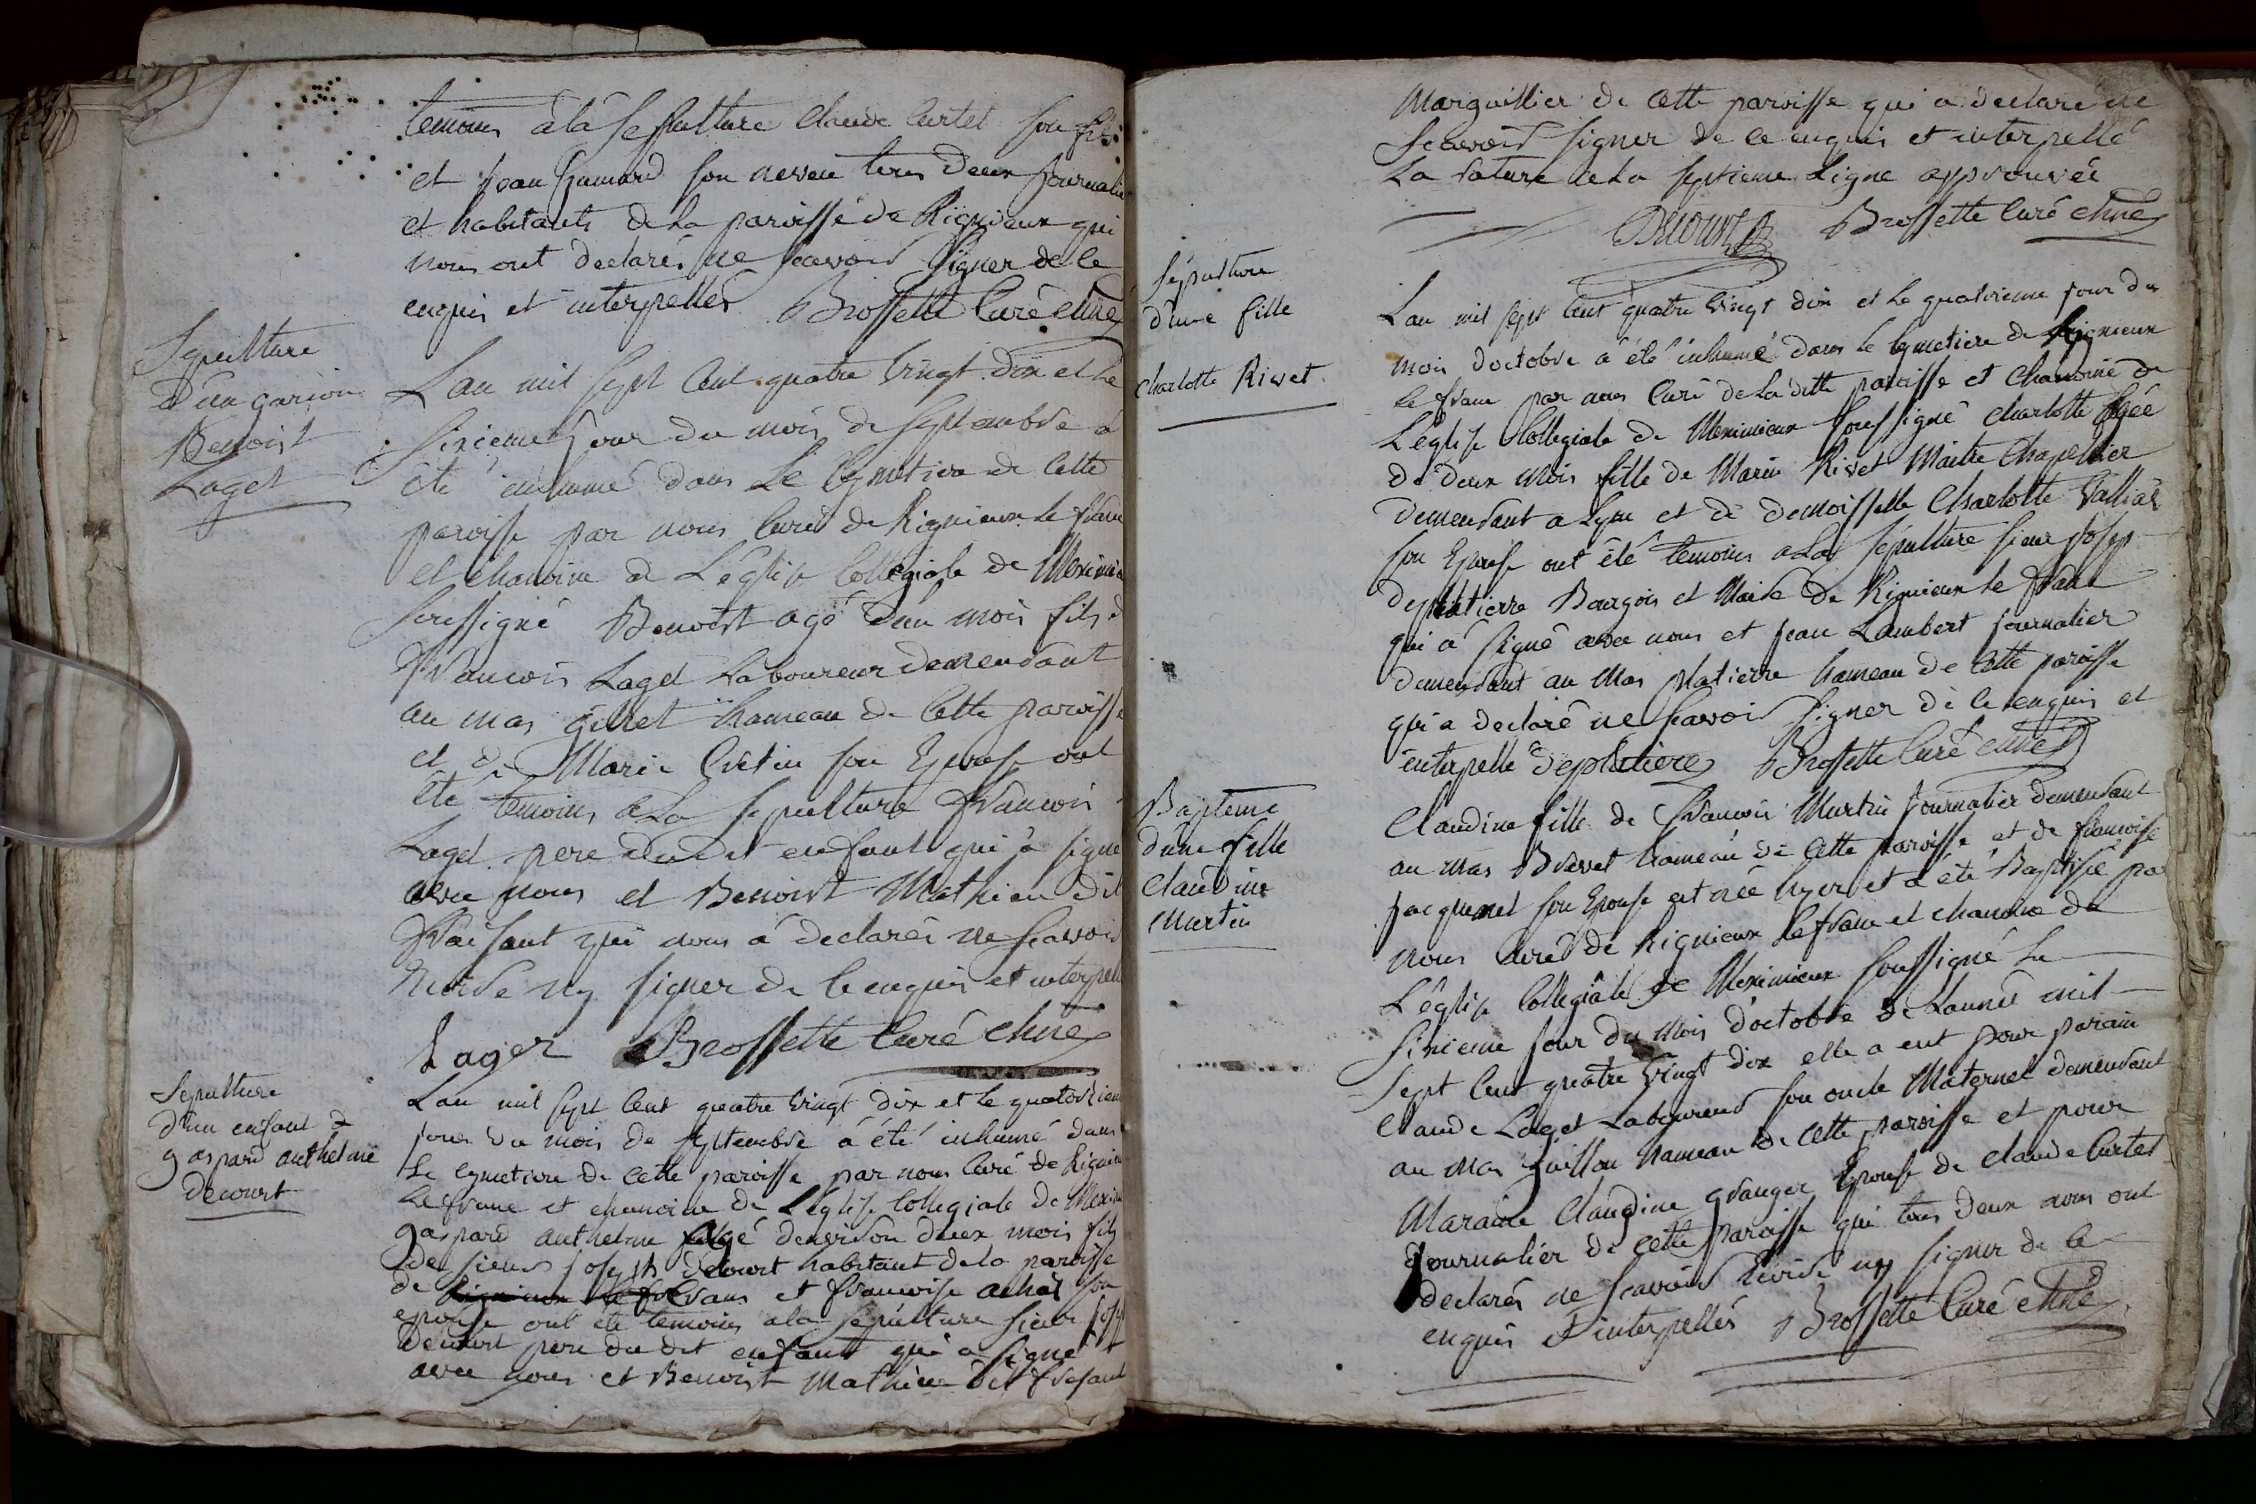 temoins a la Sepulture Claude Curtet son fils
et jean son neveu tous deux journaliers
et habitants de la paroisse de Rignieux qui
nous ont declarés ne scavoir Signer de ce
enquis et interpellés Brossette Curé chne
Sepulture
D'un garcon
Benoist
Laget
Lan mil sept cent quatre vingt dix et le
sixieme jour du mois de septembre a
été inhumé dans le cymetiere de cette
paroisse par nous Curé de Rignieux le franc
et chanoine de L'eglise Collegiale de Meximieux
soussigné Benoist agé d'un mois fils de
francois Laget Laboureur demeurant
au mas gillet hameau de cette paroisse
et de Marie Cretin son Epouse ont
été temoins a La sepulture francois
Laget pere dudit enfant qui a signé
avec nous et Benoist Mathieu dit
qui nous a declarés ne scavoir
Ecrire ny signer de ce enquis et interpellé
Laget Brossette Curé chne
Sepulture
d'un enfant
gaspard anthelme
decourt
Lan mil sept cent quatre vingt dix et le quatorzieme
jour du mois de septembre a été inhumé dans
le cymetiere de cette paroisse par nous Curé de Rignieux
le franc et chanoine de L'eglise Collegiale de Meximieux
gaspard anthelme agé denviron deux mois fils
de sieur joseph decourt habitant de la paroisse
de et francoise son
epouse ont été temoins a la sépulture sieur joseph
decourt pere du dit enfant qui a signé
avec nous et Benoist Mathieu dit
Marguillier de cette paroisse qui a declaré ne
scavoir signer de ce enquis et interpellé
La rature de la septieme Ligne approuvée
Decourt Brossette Curé chne
sépulture
d'une fille
charlotte Rivet
Lan mil sept cent quatre vingt dix et le quatrieme jour du
mois d'octobre a été inhumé dans le cymetiere de Rignieux
le franc par nous Curé de la ditte paroisse et chanoine de
L'eglise Collegiale de Meximieux soussigné charlotte agée
de deux mois fille de Marin Rivet Maitre Chapellier
demeurant a Lyon et de demoisselle Charlotte
son Epouse ont été temoins a La sepulture sieur joseph
deplatierre Bourgois et Maire de Rignieux le franc
qui a signé avec nous et jean Lambert journalier
demeurant au Mas platierre hameau de cette paroisse
qui a declaré ne scavoir signer de ce enquis et
interpellé Deplatiere Brossette Curé chne
Baptême
d'une fille
claudine
Martin
Claudine fille de francois Martin journalier demeurant
au mas Brevet hameau de cette paroisse et de francoise
jacquemet son Epouse est née hyer et a été Baptisée par
nous curé de Rignieux le franc et chanoine de
L'église Collegiale de Meximieux soussigné le
sixieme jour du mois d'octobre de Lannée mil
sept cent quatre vingt dix elle a eut pour parain
claude Laget Laboureur son oncle Maternel demeurant
au Mas guillon hameau de cette paroisse et pour
Maraine Claudine granger Epouse de claude Curtet
journalier de cette paroisse qui tous deux nous ont
declarés ne scavoir Ecrire ny signer de ce
enquis et interpellés Brossette Curé chne